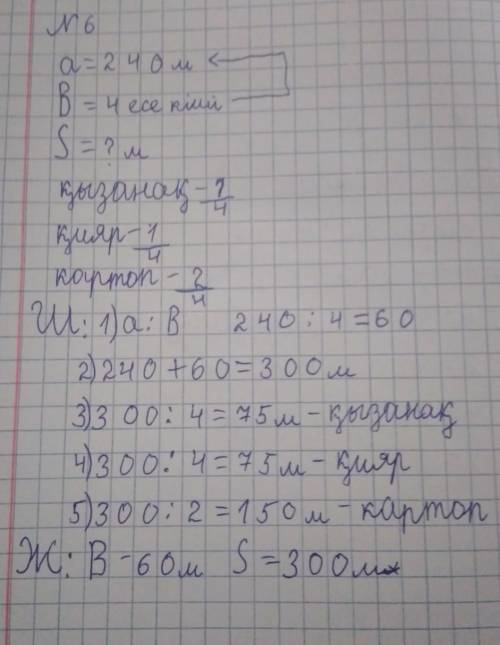 N 6
a = 240 м
В = 4 есе кіші
S = ? м
қызанақ - 1/4
қияр - 1/4
картоп - 2/4
Ш: 1) a : В 240 : 4 = 60
2) 240 + 60 = 300 м
3) 300 : 4 = 75 м - қызанақ
4) 300 : 4 = 75 м - қияр
5) 300 : 2 = 150 м - картоп
Ж: В - 60 м S = 300 м